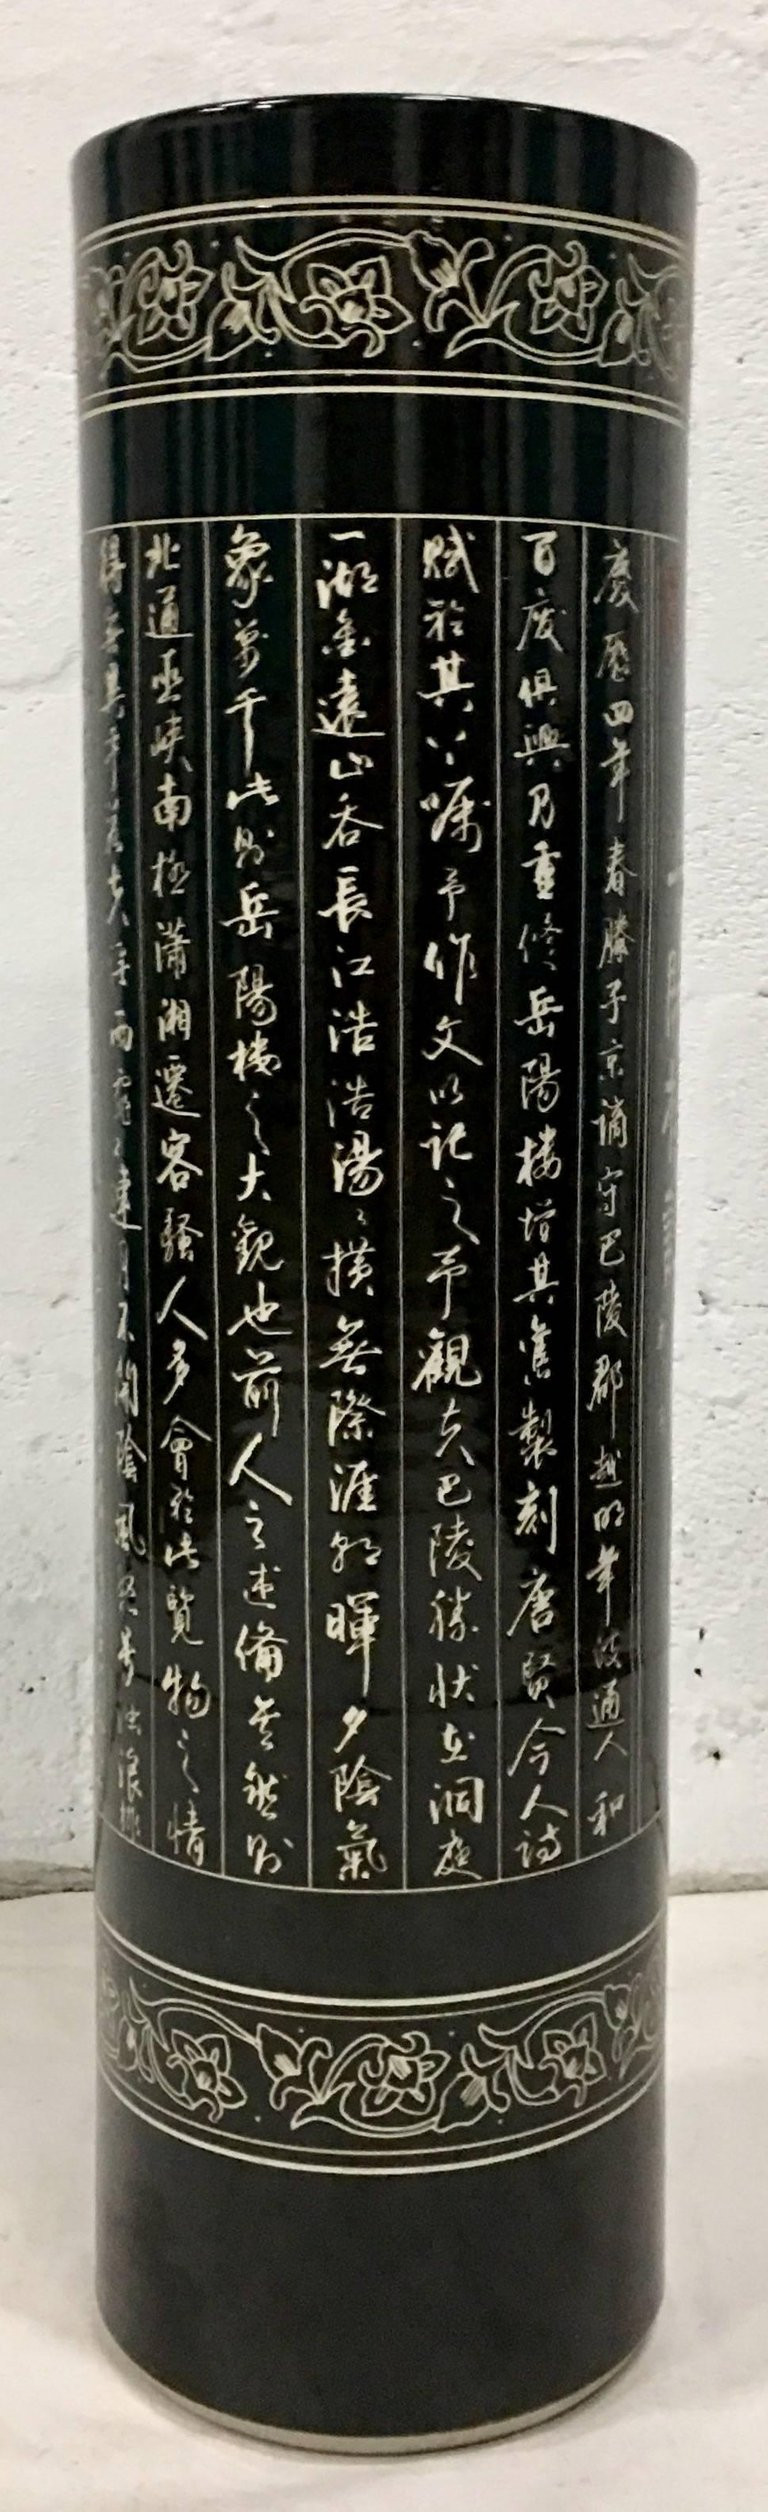 慶歷四年春滕子京謫守巴陵郡越明年政通人和
百廢俱興乃重修岳陽樓增其舊製刻唐賢今人詩
賦於其上嘱予作文以記之予觀夫巴陵勝狀在洞庭
一湖銜遠山吞長江浩浩湯〻橫無際涯朝暉夕陰氣
象萬千此則岳陽樓之大觀也前人之述備矣然則
北通巫峽南極瀟湘遷客騷人多會於此覽物之情
得無異乎若夫淫雨霏〻連月不開陰風怒号濁浪排